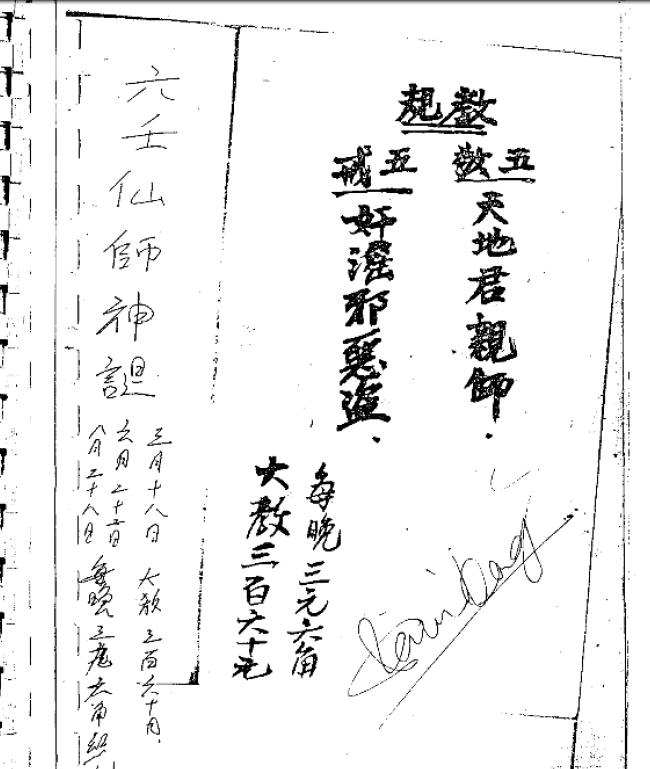 教規
五敬
天地君親師.
五戒
奸淫邪惡盜.
每晚三元六角
大教三百六十元
六壬仙師神誕
三月十八日 大教三百六十
六月二十日
八月二十八日 每晚三 六角